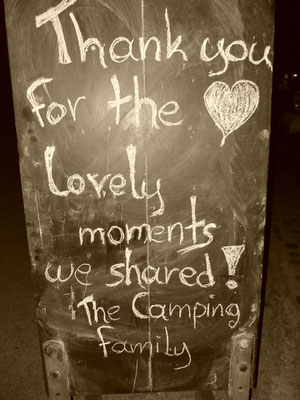 Thank you
for the
Lovely
moments
we shared!
The Camping
family